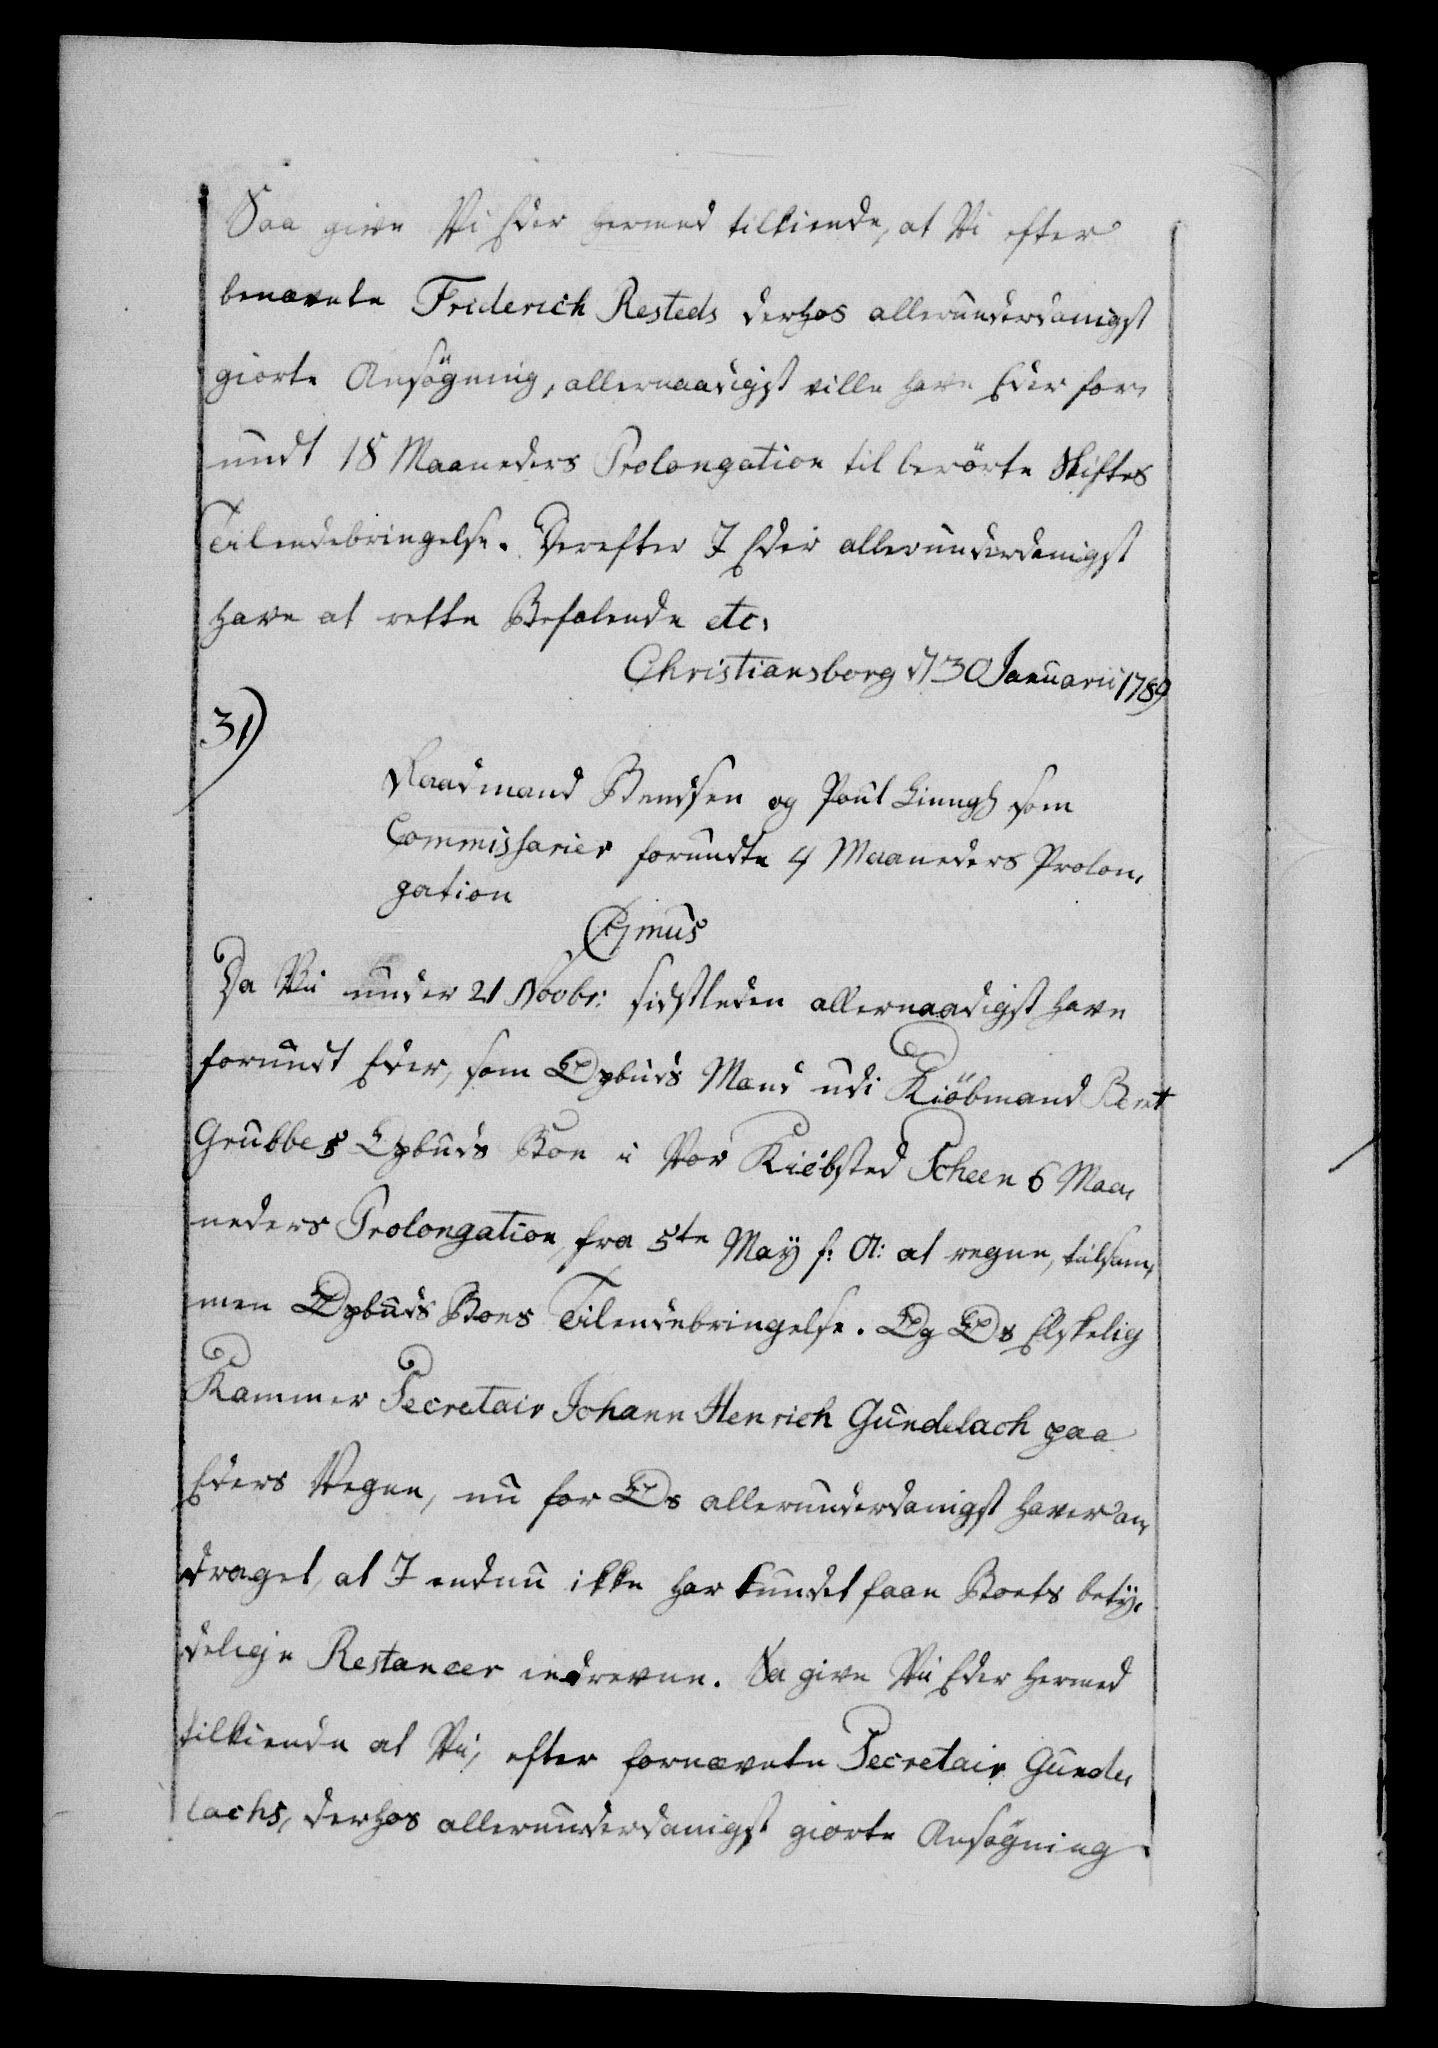 Saa give Vi Eder hermed tilkiende, at Vi efter
benævnte Friderich Resteds derhos allerunderdanigst
giorte Ansögning, allernaadigst ville have Eder for-
undt 18 Maaneders Prolongation til berörte Skiftes
Tilendebringelse. Derefter I Eder allerunderdanigst
have at rette Befalende etc.
Christiansborg d/ 30 Januarii 1789
31)
Raadmand Bendsen og Poul Linngh som
Commissarier forundte 4 Maaneders Prolon-
gation
C 7mus
Da Vii under 21 Novbr: sidstleden allernaadigst have
forundt Eder, som Opbuds Mænd udi Kiöbmand Bent
Grubbes Opbuds Boe i Vor Kiöbsted Scheen 6 Maa-
neders Prolongation, fra 5te May f: A: at regne, til sam-
men Opbuds Boes Tilendebringelse. Og Os Elskelig
Kammer Secretair Johann Henrich Gundelach paa
Eders Vegne, nu for Os allerunderdanigst haver an-
draget, at I endnu ikke har kundet faae Boets bety-
delige Restancer inddrevne. Sa give Vii Eder hermed
tilkiende at Vii, efter fornævnte Secretair Gunde-
lachs, derhos allerunderdanigst giorte Ansögning